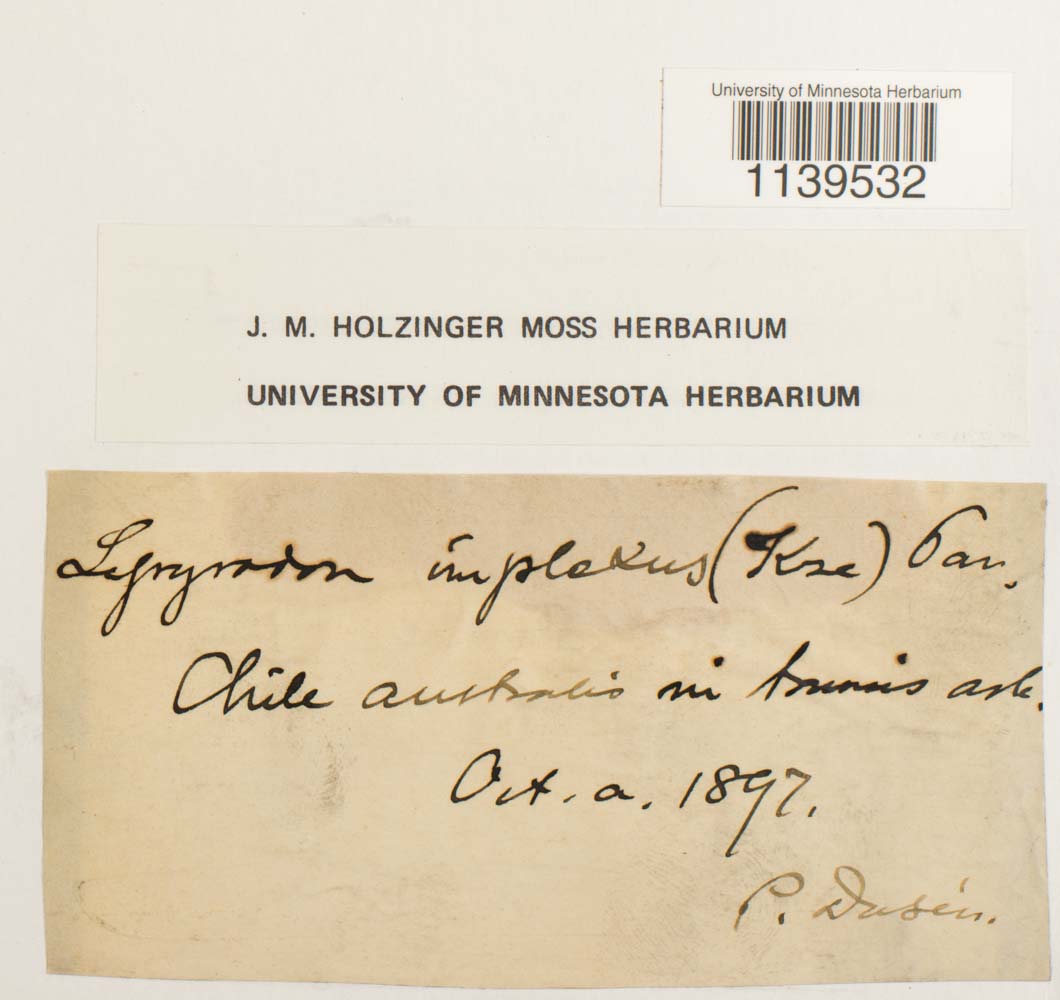 University of Minnesota Herbarium
1139532
J. M. HOLZINGER MOSS HERBARIUM
UNIVERSITY OF MINNESOTA HERBARIUM
implexus (Kze) Par.
Chile australis in truncis arb.
Oct. a. 1897.
P. Dusén.